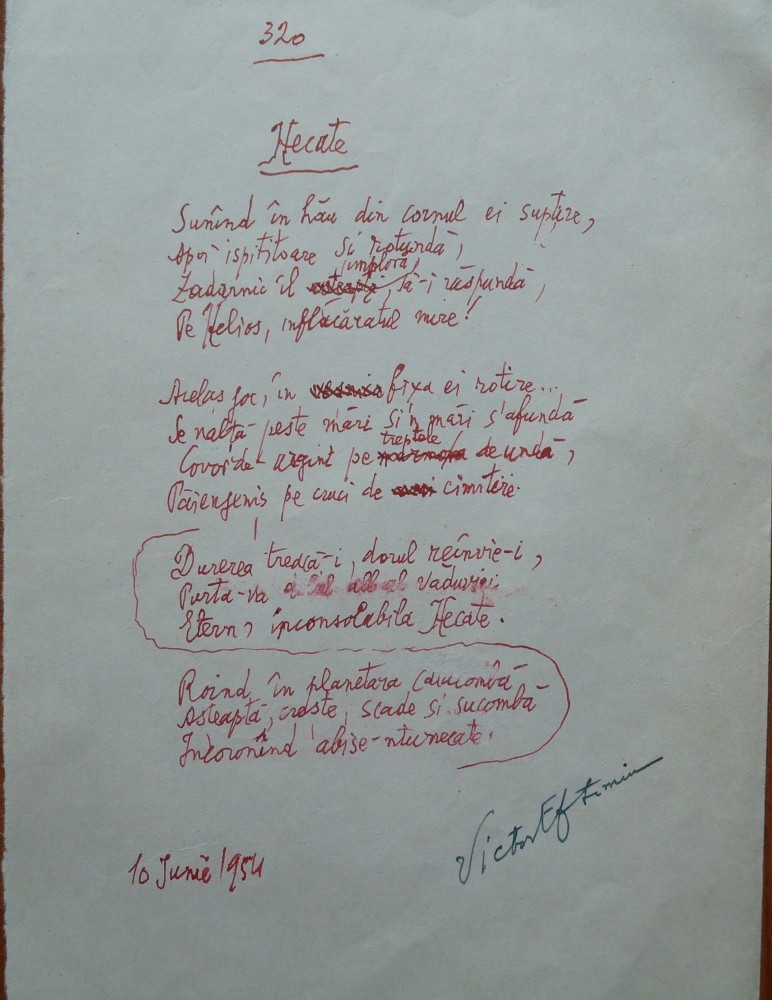 320
Hecate
Sunînd în hău din cornul ei supțire,
Apoi ispititoare și rotundă,
imploră,
Zadarnic îl să-i răspundă,
Pe Helios, inflăcăratul mire!
Acelaș joc, în fixa ei rotire...
Se nalță peste mări și'n mări s'afundă
treptele
Covor de argint pe de undă,
Păienjeniș pe cruci de cimitire.
Durerea treacă-i, dorul reînvie-i,
Purta-va alb al văduviei
Etern, inconsolabila Hecate.
Roind în planetara catacombă
Așteaptă, crește, scade și sucombă
Incoronînd abise-ntunecate.
10 Iunie 1954
Victor Eftimiu